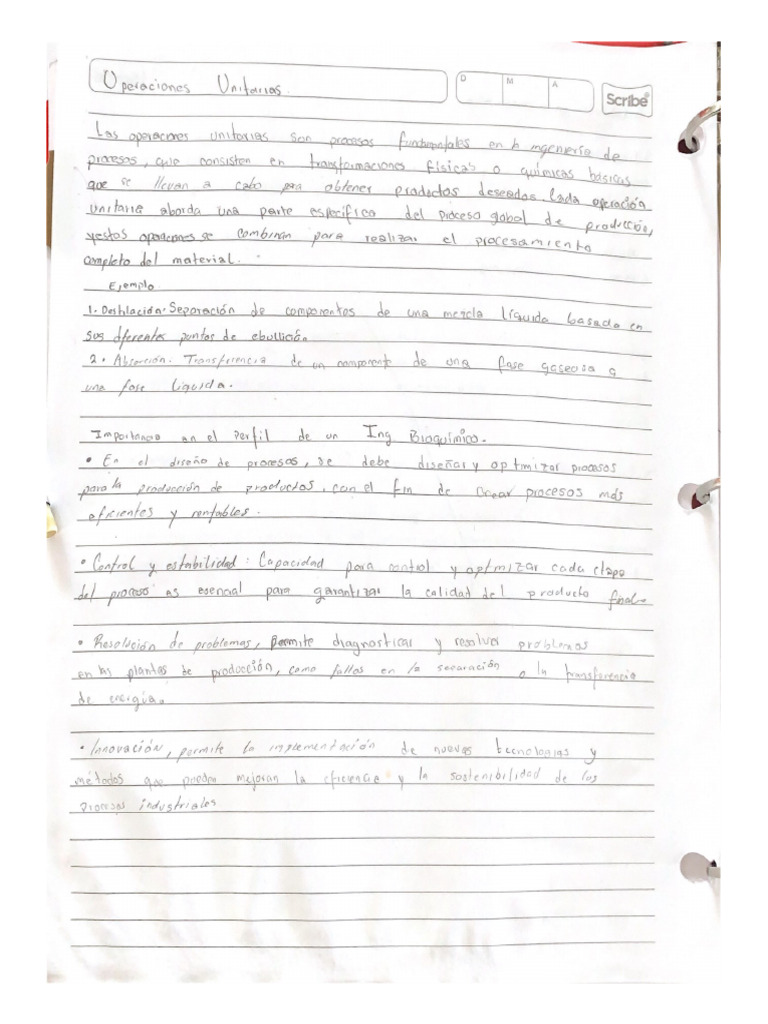 Operaciones Unitarias.
D M A
Scribe
Las operaciones unitarias son procesos fundamentales en la ingeniería de
procesos, que consisten en transformaciones físicas o químicas básicas
que se llevan a cabo para obtener productos deseados. Cada operación
unitaria aborda una parte específica del proceso global de producción,
y estas operaciones se combinan para realizar el procesamiento
completo del material.
Ejemplo
1. Destilación: Separación de componentes de una mezcla líquida basada en
sus diferentes puntos de ebullición.
2. Absorción. Transferencia de un componente de una fase gaseosa a
una fase líquida.
Importancia en el Perfil de un Ing Bioquímico.
• En el diseño de procesos, se debe diseñar y optimizar procesos
para la producción de productos, con el fin de crear procesos más
eficientes y rentables.
• Control y estabilidad: Capacidad para control y optimizar cada etapa
del proceso es esencial para garantizar la calidad del producto final.
• Resolución de problemas, permite diagnosticar y resolver problemas
en las plantas de producción, como fallos en la separación o la transferencia
de energía.
• Innovación, permite la implementación de nuevas tecnologías y
métodos que puedan mejoran la eficiencia y la sostenibilidad de los
procesos industriales